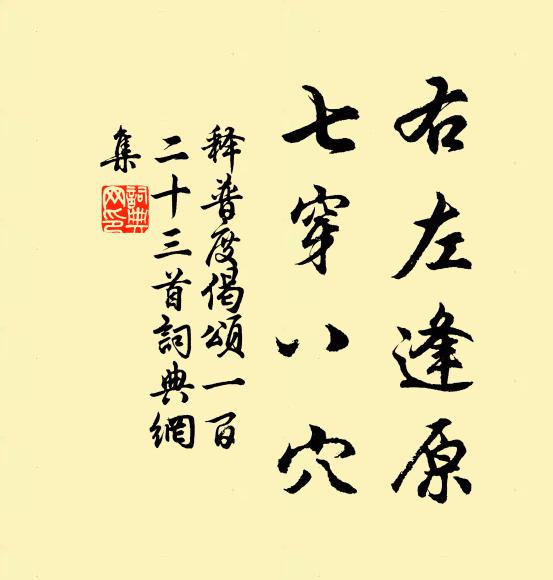 右左逢原
七穿八穴
释普度偈頌一百
二十三首詞典網
集
詞典
网印